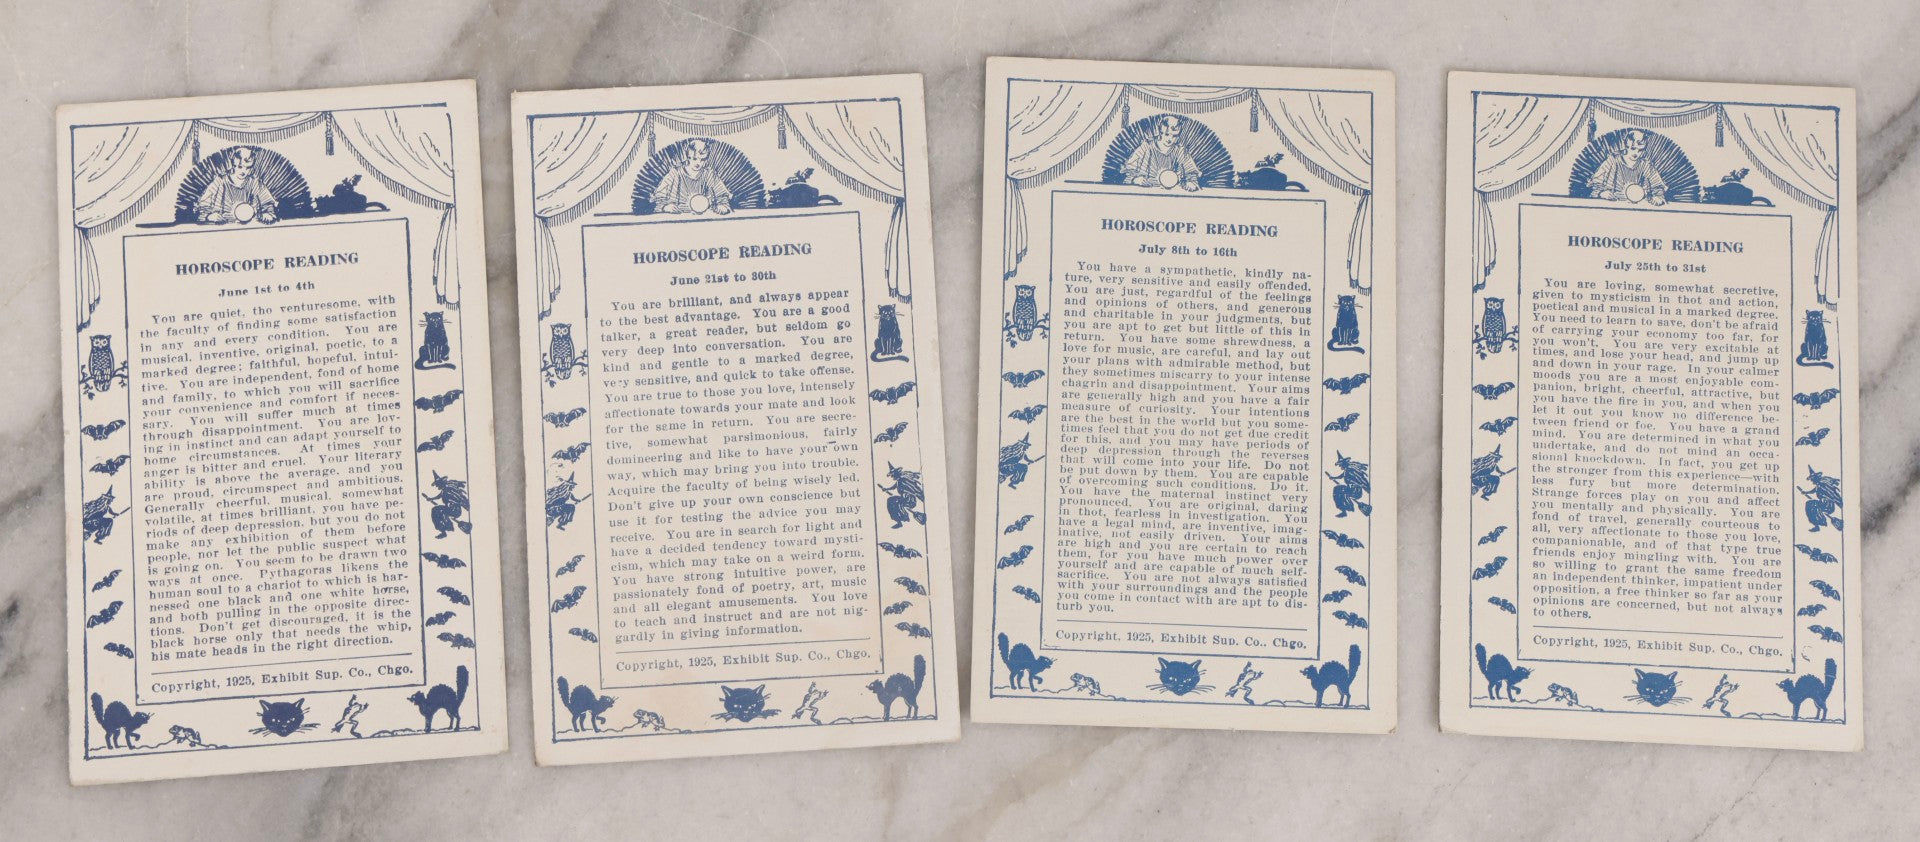 HOROSCOPE READING
June 1st to 4th
You are quiet, tho venturesome, with
the faculty of finding some satisfaction
in any and every condition. You are
musical, inventive, original, poetic, to a
marked degree; faithful, hopeful, intui-
tive. You are independent, fond of home
and family, to which you will sacrifice
your convenience and comfort if neces-
sary. You will suffer much at times
through disappointment. You are lov-
ing in instinct and can adapt yourself to
home circumstances. At times your
anger is bitter and cruel. Your literary
ability is above the average, and you
are proud, circumspect and ambitious.
Generally cheerful, musical, somewhat
volatile, at times brilliant, you have pe-
riods of deep depression, but you do not
make any exhibition of them before
people, nor let the public suspect what
is going on. You seem to be drawn two
ways at once. Pythagoras likens the
human soul to a chariot to which is har-
nessed one black and one white horse,
and both pulling in the opposite direc-
tions. Don't get discouraged, it is the
black horse only that needs the whip,
his mate heads in the right direction.
Copyright, 1925, Exhibit Sup. Co., Chgo.
HOROSCOPE READING
June 21st to 30th
You are brilliant, and always appear
to the best advantage. You are a good
talker, a great reader, but seldom go
very deep into conversation. You are
kind and gentle to a marked degree,
very sensitive, and quick to take offense.
You are true to those you love, intensely
affectionate towards your mate and look
for the same in return. You are secre-
tive, somewhat parsimonious, fairly
domineering and like to have your own
way, which may bring you into trouble.
Acquire the faculty of being wisely led.
Don't give up your own conscience but
use it for testing the advice you may
receive. You are in search for light and
have a decided tendency toward mysti-
cism, which may take on a weird form.
You have strong intuitive power, are
passionately fond of poetry, art, music
and all elegant amusements. You love
to teach and instruct and are not nig-
gardly in giving information.
Copyright, 1925, Exhibit Sup. Co., Chgo.
HOROSCOPE READING
July 8th to 16th
You have a sympathetic, kindly na-
ture, very sensitive and easily offended.
You are just, regardful of the feelings
and opinions of others, and generous
and charitable in your judgments, but
you are apt to get but little of this in
return. You have some shrewdness, a
love for music, are careful, and lay out
your plans with admirable method, but
they sometimes miscarry to your intense
chagrin and disappointment. Your aims
are generally high and you have a fair
measure of curiosity. Your intentions
are the best in the world but you some-
times feel that you do not get due credit
for this, and you may have periods of
deep depression through the reverses
that will come into your life. Do not
be put down by them. You are capable
of overcoming such conditions. Do it.
You have the maternal instinct very
pronounced. You are original, daring
in thot, fearless in investigation. You
have a legal mind, are inventive, imag-
inative, not easily driven. Your aims
are high and you are certain to reach
them, for you have much power over
yourself and are capable of much self-
sacrifice. You are not always satisfied
with your surroundings and the people
you come in contact with are apt to dis-
turb you.
Copyright, 1925, Exhibit Sup. Co., Chgo.
HOROSCOPE READING
July 25th to 31st
You are loving, somewhat secretive,
given to mysticism in thot and action,
poetical and musical in a marked degree.
You need to learn to save, don't be afraid
of carrying your economy too far, for
you won't. You are very excitable at
times, and lose your head, and jump up
and down in your rage. In your calmer
moods you are a most enjoyable com-
panion, bright, cheerful, attractive, but
you have the fire in you, and when you
let it out you know no difference be-
tween friend or foe. You have a grand
mind. You are determined in what you
undertake, and do not mind an occa-
sional knockdown. In fact, you get up
the stronger from this experience—with
less fury but more determination.
Strange forces play on you and affect
you mentally and physically. You are
fond of travel, generally courteous to
all, very affectionate to those you love,
companionable, and of that type true
friends enjoy mingling with. You are
so willing to grant the same freedom
an independent thinker, impatient under
opposition, a free thinker so far as your
opinions are concerned, but not always
to others.
Copyright, 1925, Exhibit Sup. Co., Chgo.